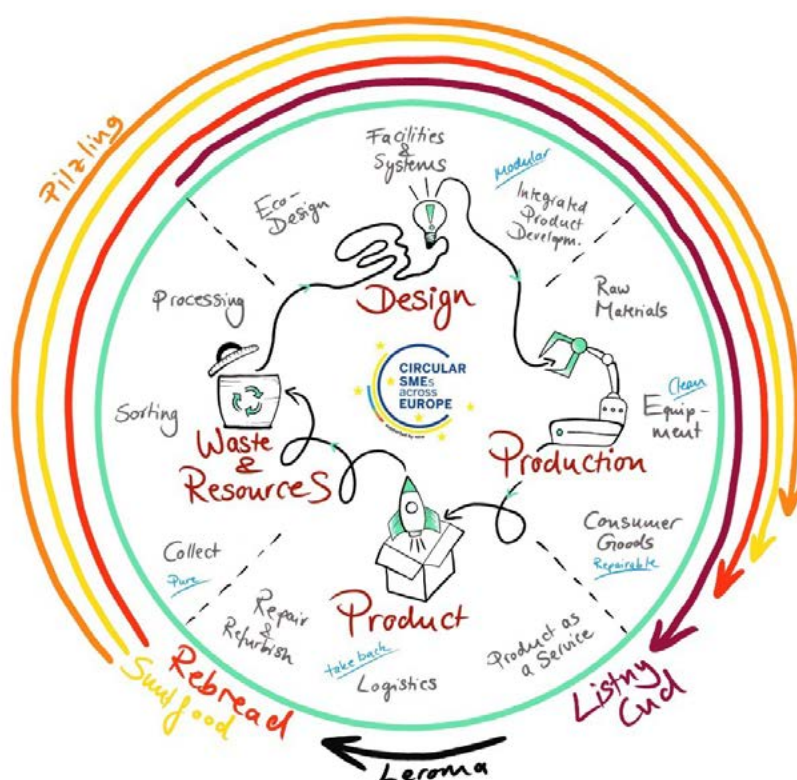 Pilzling
Facilities
&
Systems
Modular
Eco-
Design
Integrated
Product
Developm.
Processing
Design
Raw
Materials
CIRCULAR
SMEs
across
EUROPE
Clean
Equip-
ment
Sorting
Waste
&
Resources
Production
Consumer
Goods
Repairable
Collect
Pure
Repair
&
Refurbish
Product
take back
Logistics
Product as
a Service
Rebread
Listny
Cud
Leroma